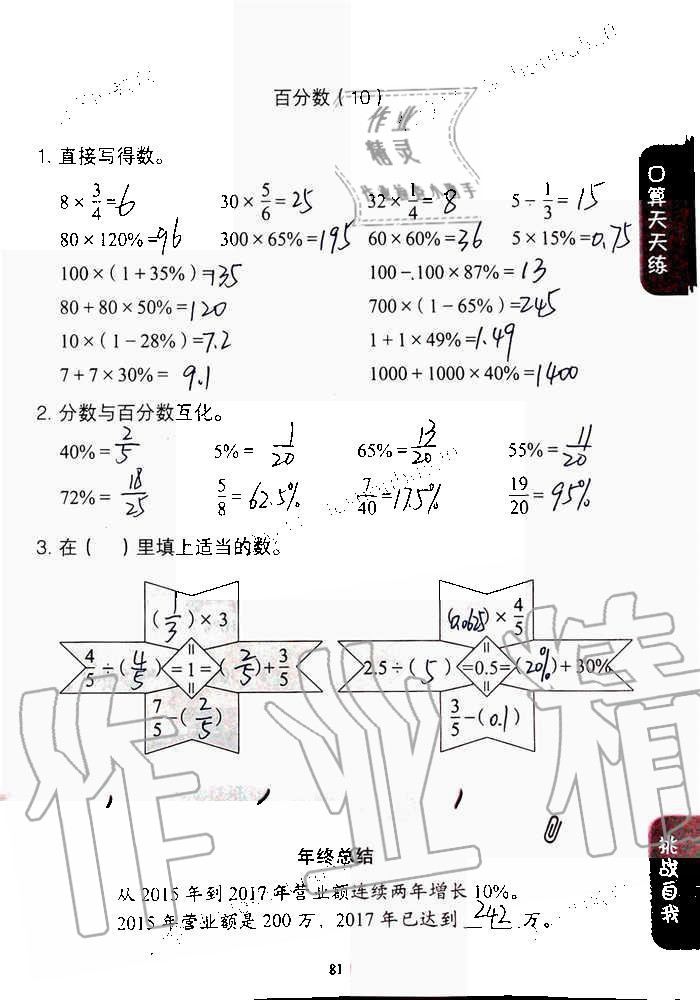 百分数（10）
作业
精灵
1. 直接写得数。
8 × 3/4 = 6  30 × 5/6 = 25  32 × 1/4 = 8  5 ÷ 1/3 = 15
80 × 120% = 96  300 × 65% = 195  60 × 60% = 36  5 × 15% = 0.75
100 × (1 + 35%) = 135  100 − 100 × 87% = 13
80 + 80 × 50% = 120  700 × (1 − 65%) = 245
10 × (1 − 28%) = 7.2  1 + 1 × 49% = 1.49
7 + 7 × 30% = 9.1  1000 + 1000 × 40% = 1400
2. 分数与百分数互化。
40% = 2/5  5% = 1/20  65% = 13/20  55% = 11/20
72% = 18/25  5/8 = 62.5%  7/40 = 17.5%  19/20 = 95%
3. 在（　）里填上适当的数。
(1/3) × 3
4/5 ÷ (4/5) = 1 = (2/5) + 3/5
7/5 − (2/5)
(0.0625) × 4/5
2.5 ÷ (5) = 0.5 = (20%) + 30%
3/5 − (0.1)
年终总结
从 2015 年到 2017 年营业额连续两年增长 10%。
2015 年营业额是 200 万，2017 年已达到 242 万。
81
口算天天练
挑战自我
作业精